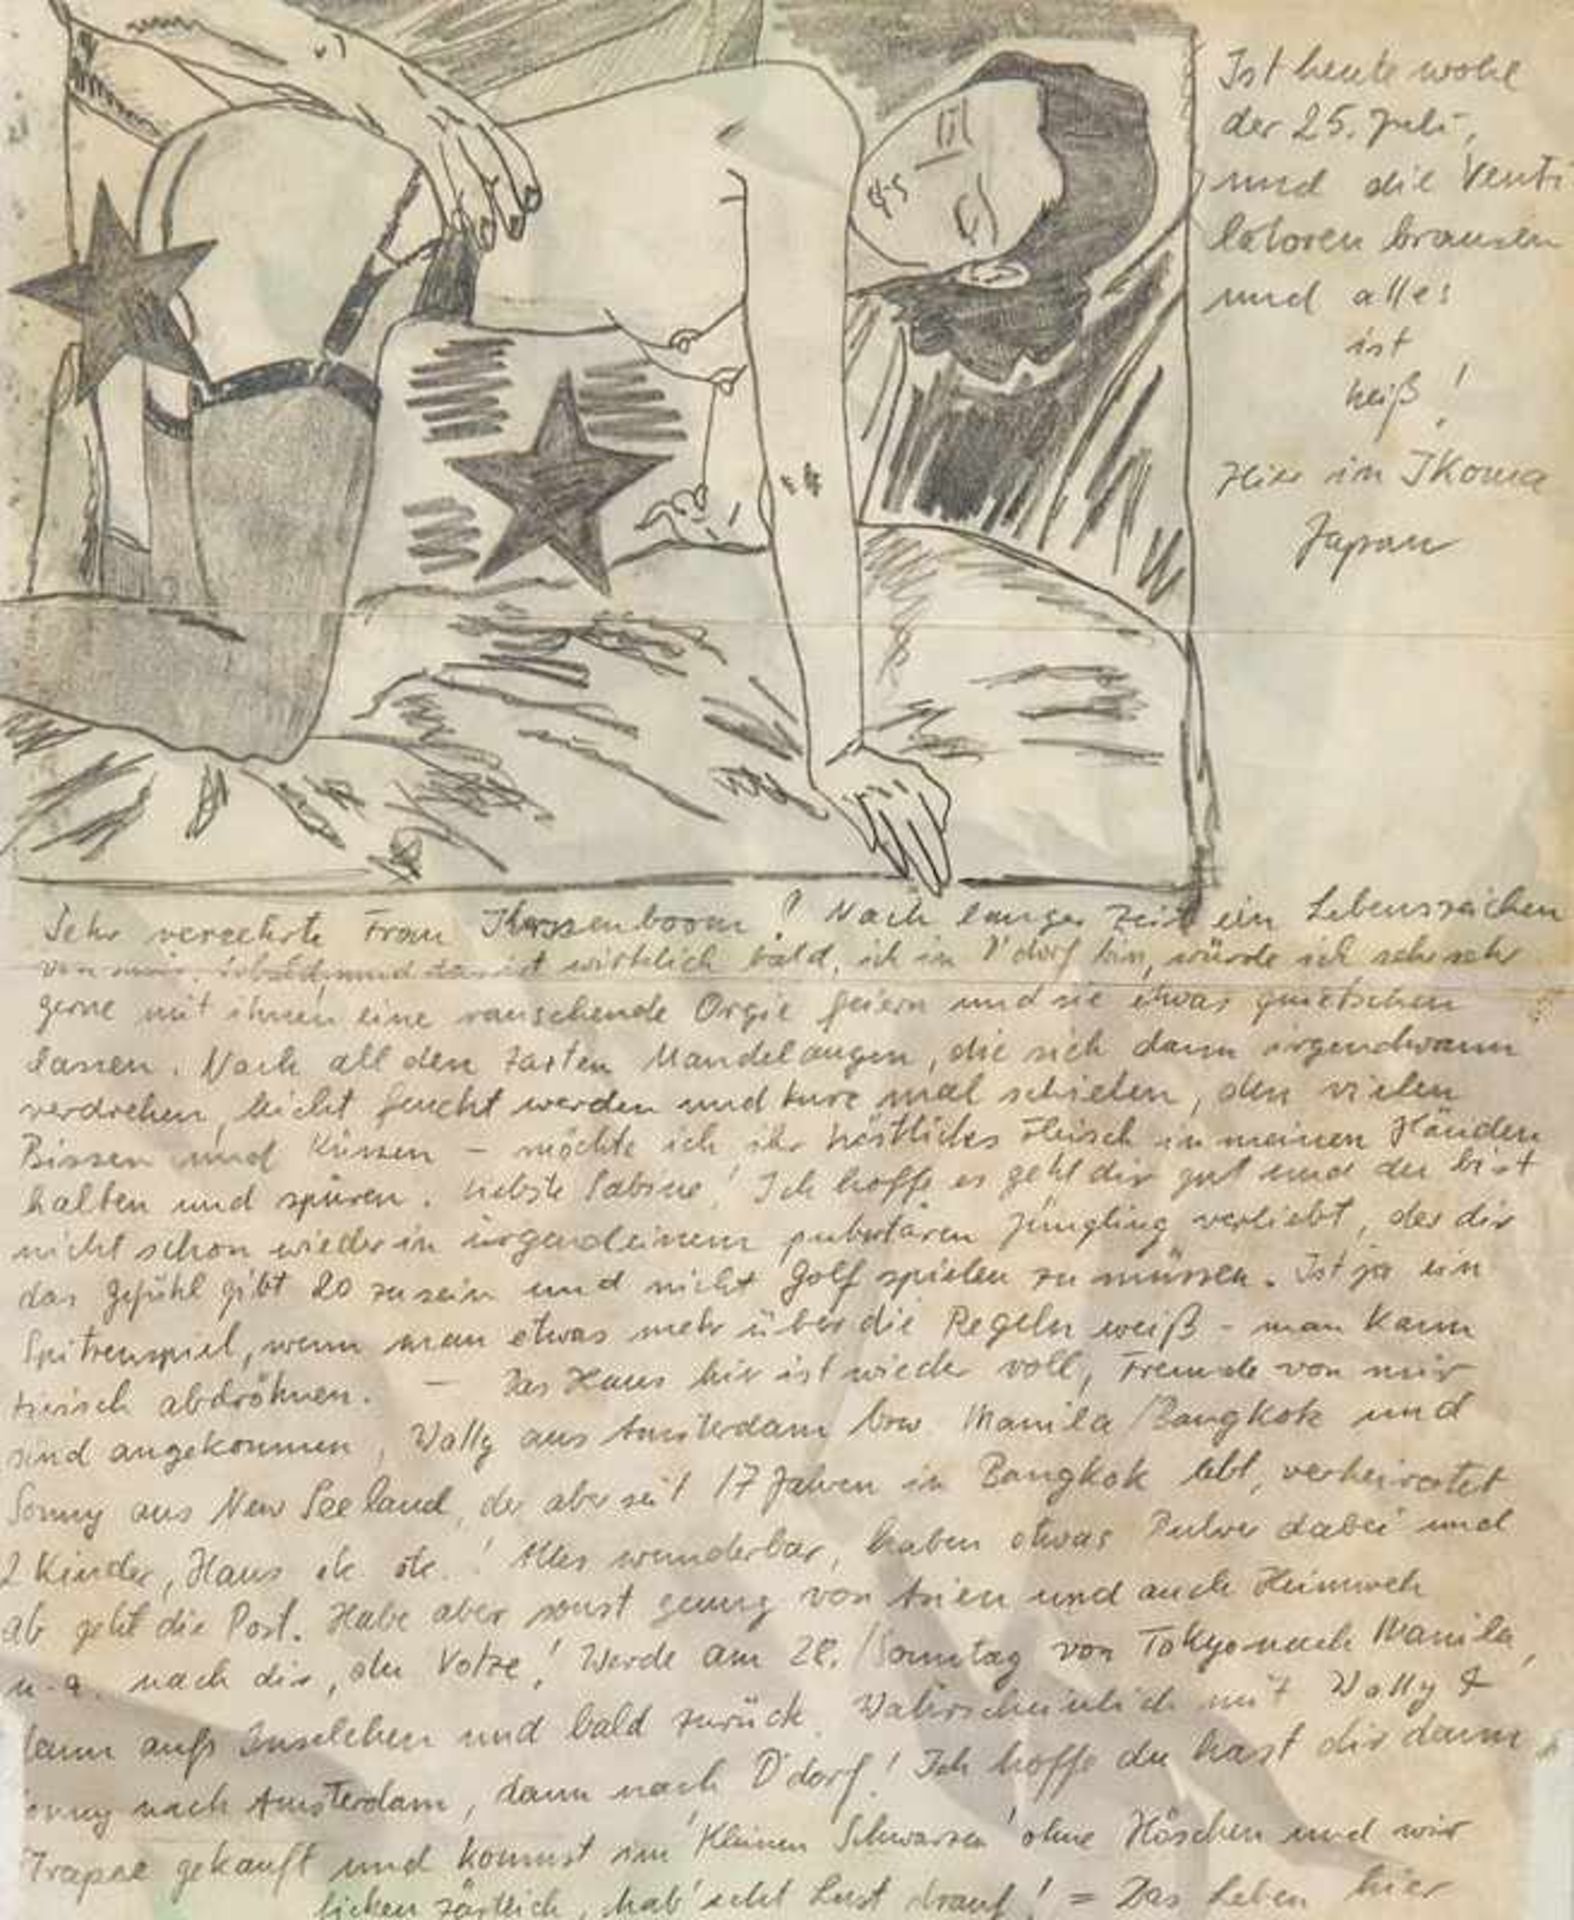 Ist heute wohl
der 25. Juli,
und die Venti
latoren brausen
und alles
ist
heiß!
Hier in IKoma
Japan
Sehr verehrte Frau ! Nach langer Zeit ein Lebenszeichen
von mir. Sobald, und das ist wirklich bald, ich in D'dorf bin, würde ich sehr sehr
gerne mit ihnen eine rauschende Orgie feiern und sie etwas quietschen
lassen. Nach all den zarten Mandelaugen, die sich dann irgendwann
verdrehen, leicht feucht werden und kurz mal schielen, den vielen
Bissen und Küssen – möchte ich ihr köstliches Fleisch in meinen Händen
halten und spüren. Liebste Sabine! Ich hoffe es geht dir gut und du bist
nicht schon wieder in irgendeinem pubertären Jüngling verliebt, der dir
das Gefühl gibt 20 zu sein und nicht Golf spielen zu müssen. Ist ja ein
Spitzenspiel, wenn man etwas mehr über die Regeln weiß – man kann
tierisch abdröhnen. – Das Haus hier ist wieder voll, Freunde von mir
sind angekommen, Wally aus Amsterdam bzw. Manila/Bangkok und
Sonny aus New Seeland, der aber seit 17 Jahren in Bangkok lebt, verheiratet
2 Kinder, Haus etc. etc.! Alles wunderbar, haben etwas Pulver dabei und
ab geht die Post. Habe aber sonst genug von Asien und auch Heimweh
u.a. nach dir, du Votze! Werde am 28./Sonntag von Tokyo nach Manila,
dann aufs Inselchen und bald zurück. Wahrscheinlich mit Wally &
onny nach Amsterdam, dann nach D'dorf! Ich hoffe du hast dir dann
Trapez gekauft und kommst im 'Kleinen Schwarzen' ohne Höschen und wir
ficken zärtlich, hab' echt Lust drauf! = Das Leben hier